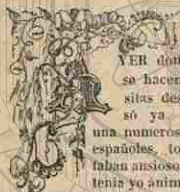 AYER don
se hacen
sitas des
só ya
una numeros
españoles, to
taban ansioso
tenia yo anim